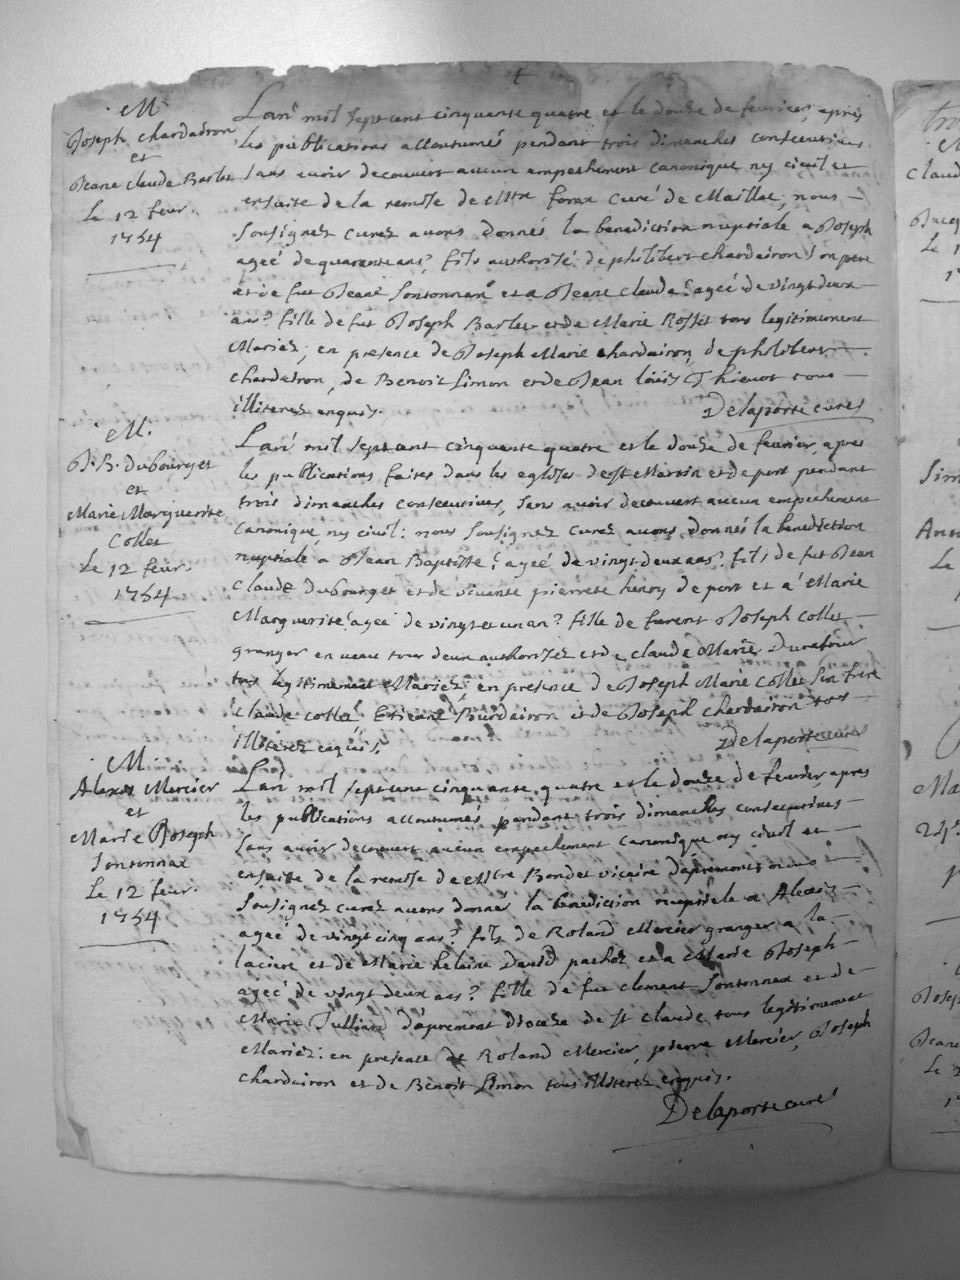 M.
Joseph chardairon
et
Jeane claude Barlet
Le 12 fevr.
1754
L'an mil sept cent cinquante quatre et le douze de fevrier, apres
les publications accoutumés pendant trois dimanches consecutives
sans avoir decouvert aucun empeshement canonique ny civil et
ensuite de la remise de Mtre foras curé de Maillat, nous -
soussignez curez avons donnés la benediction nuptiale a Joseph
ageé de quarente ans, fils authorisé de philibert chardairon son pere
et de fut Jeane sontonnax et a Jeane claude ageé de vingt deux
ans, fille de fut Joseph Barlet et de Marie Rosset tous legitimement
Mariez; en presence de Joseph Marie chardairon, de philibert
chardairon, de Benoit Simon et de Jean louis Thievot tous
illiterez enquis.
Delaporte curez
M.
J. B. dubourget
et
Marie Marguerite
Collet
Le 12 fevr.
1754
L'an mil sept cent cinquante quatre et le douze de fevrier, apres
les publications faites dans les eglises de st Martin et de port pendant
trois dimanches consecutives, sans avoir decouvert aucun empechement
canonique, ny civil: nous soussignez curez avons donnés la benediction
nuptiale a Jean Baptiste ageé de vingt deux ans, fils de fut Jean
claude dubourget et de vivante pierrete henry de port et a Marie
Marguerite ageé de vingt et un an, fille de Joseph Collet
granger en tour deux authorisez et de claude Marie Duratour
tous legitimement Mariez, en presence de Joseph Marie Collet son frere
claude collet Etienne Burdairon et de Joseph chardairon tous
illiterez enquis.
Delaporte curez
M.
Alexis Mercier
et
Marie Joseph
Sontonnax
Le 12 fevr.
1754
L'an mil sept cent cinquante quatre et le douze de fevrier, apres
les publications accoutumés pendant trois dimanches consecutives -
sans avoir decouvert aucun empechement canonique ny civil et -
ensuite de la remise de Mtre Bondet vicaire d'apremont nous -
soussignez curez avons donnés la benediction nuptiale a Alexis -
ageé de vingt cinq ans, fils de Roland Mercier granger a la -
laciere et de Marie helaine David et a Marie Joseph -
ageé de vingt deux ans, fille de fut clement Sontonnax et de -
Marie Julliard d'apremont diocese de st claude tous legitimement
Mariez: en presence de Roland Mercier, pierre Mercier, Joseph
chardairon et de Benoit Simon tous illiterez enquis.
Delaporte curé
claud
Jacq
Le 1
Sim
Ann
Le
Ma
Josep
Jeane
Le 2